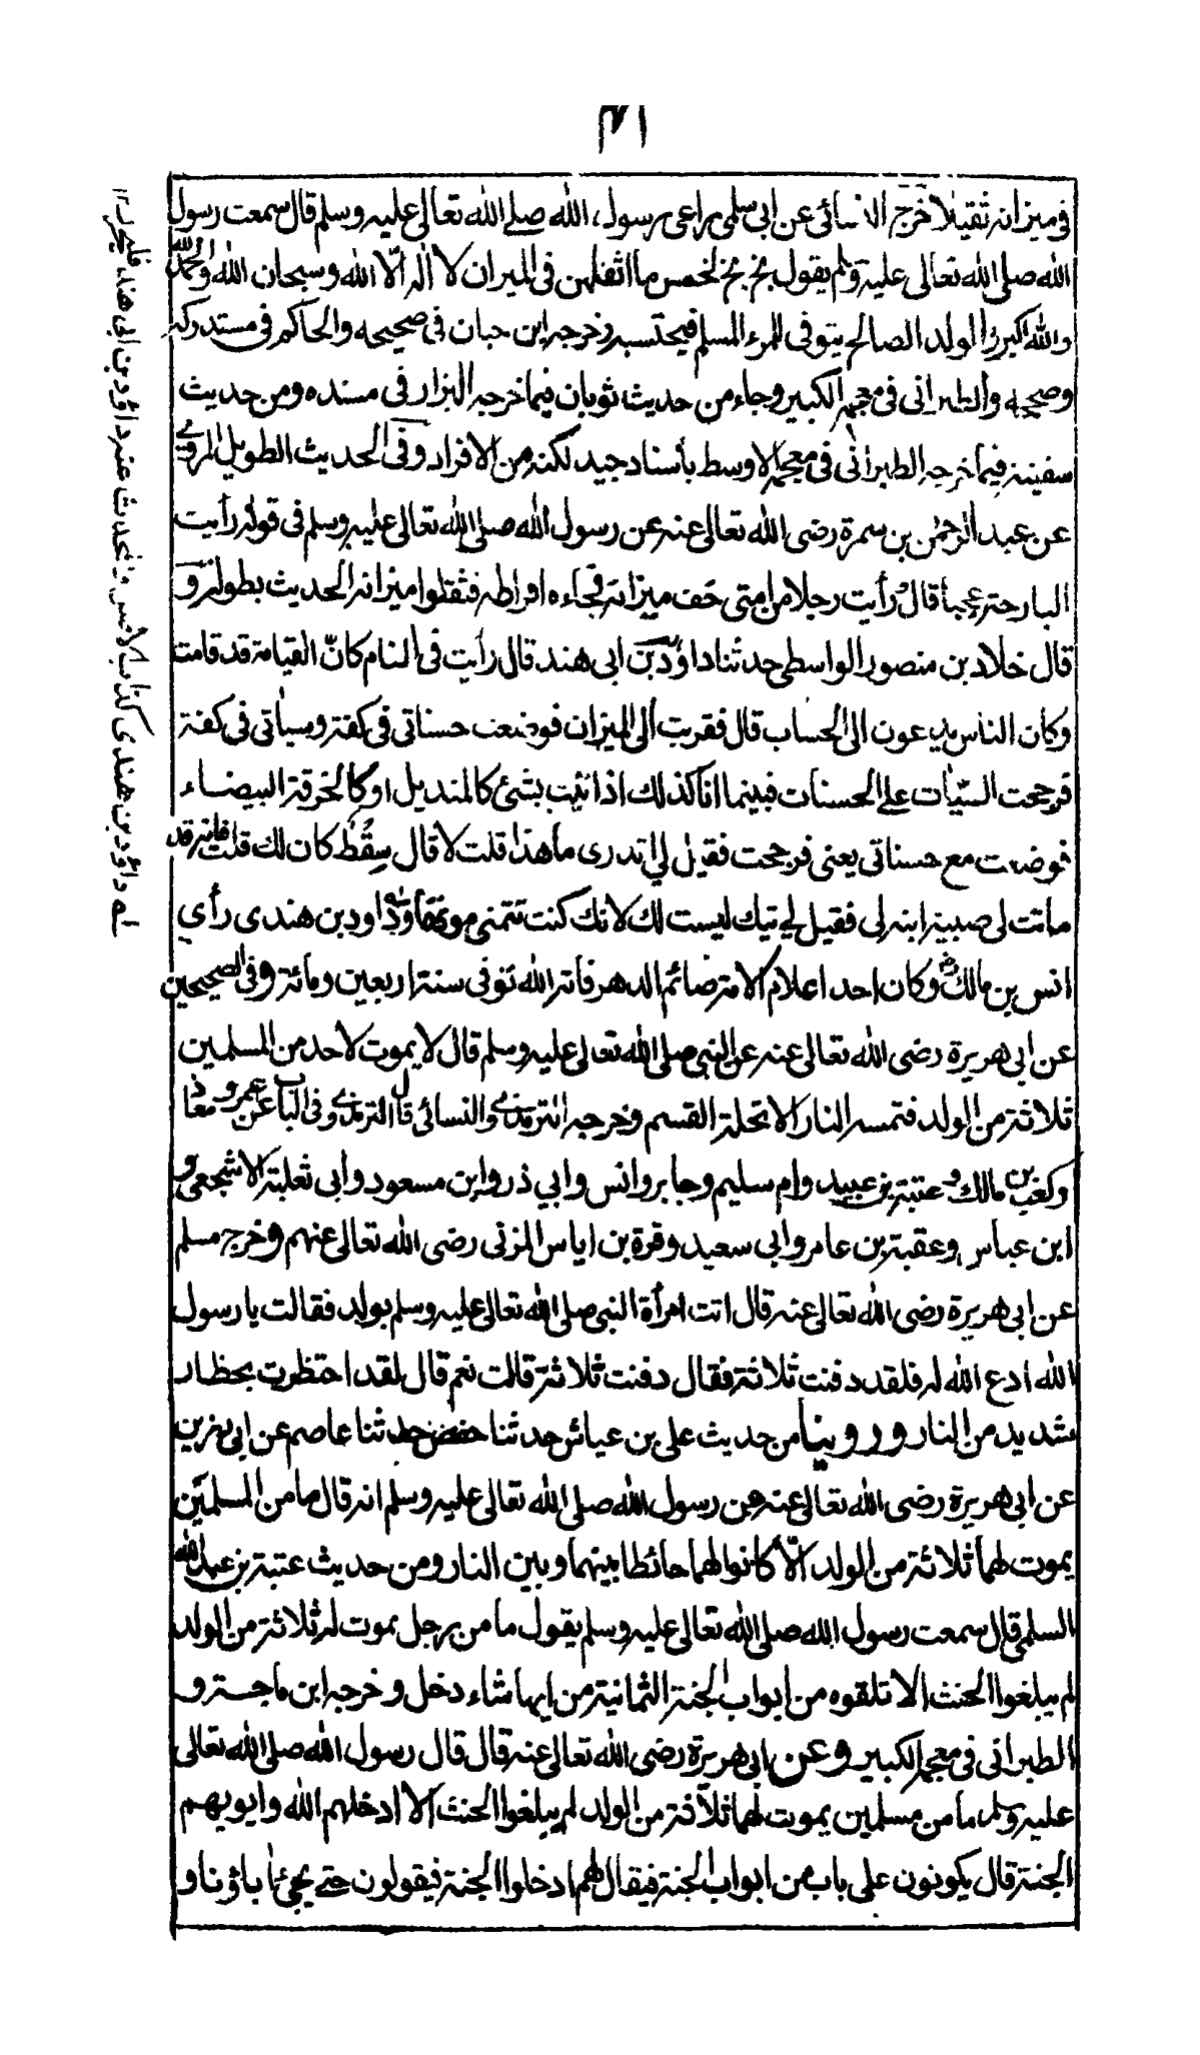 ٣١
فى ميزانه ثقيلا اخرج النسائى عن ابى سلمى راعى رسول الله صلے الله تعالى عليه وسلم قال سمعت رسول
الله صلى الله تعالى عليه وسلم يقول بخ بخ لخمس ما اثقلهن فى الميزان لا اله الّا الله وسبحان الله والحمد لله
والله اكبر والولد الصالح يتوفى للمرء المسلم فيحتسبه وخرجه ابن حبان فى صحيحه والحاكم فى مستدركه
وصححه والطبرانى فى معجمه الكبير وجاء من حديث ثوبان فيما خرجه البزار فى مسنده ومن حديث
سفينة فيما خرجه الطبرانى فى معجمه الاوسط بأسناد جيد لكنه من الافراد وفى الحديث الطويل المروى
عن عبد الرحمٰن بن سمرة رضى الله تعالى عنه عن رسول الله صلى الله تعالى عليه وسلم فى قوله رأيت
البارحة عجبا قال ورأيت رجلا من امتى خف ميزانه فجاءه افراطه فثقلوا ميزانه الحديث بطوله و
قال خلاد بن منصور الواسطى حدثنا داؤد بن ابى هند قال رأيت فى المنام كانّ القيامة قد قامت
وكان الناس يدعون الى الحساب قال فقربت الى الميزان فوضعت حسناتى فى كفة وسيأتى فى كفة
فرجحت السيّات على الحسنات فبينما انا كذلك اذ اتيت بشئ كالمنديل او كالخرقة البيضاء
فوضعت مع حسناتى يعنى فرجحت فقيل لى اتدرى ما هذا قلت لا قال سِقُطٌ كان لك قلت فانه قد
ماتت لى صبية ابنة لى فقيل لى تيك ليست لك لانك كنت تتمنى موتها وداود بن هندى رأى
انس بن مالك وكان احد اعلام الامة صائم الدهر قانة الله توفى سنة اربعين ومائة وفى الصحيحين
عن ابى هريرة رضى الله تعالى عنه عن النبى صلى الله تعالى عليه وسلم قال لا يموت لاحد من المسلمين
ثلاثة من الولد فتمسه النار الا تحلة القسم وخرجه الترمذى والنسائى قال الترمذى وفى الباب عن عمرو معاذ
وكعب بن مالك وعتبة بن عبيد وام سليم وجابر وانس وابي ذر وابن مسعود وابى ثعلبة الاشجعى و
ابن عباس وعقبة بن عامر وابى سعيد وقرة بن اياس المزنى رضى الله تعالى عنهم وخرج مسلم
عن ابى هريرة رضى الله تعالى عنه قال اتت امرأة النبى صلى الله تعالى عليه وسلم بولد فقالت يا رسول
الله ادع الله له فلقد دفنت ثلاثة فقال دفنت ثلاثة قالت نعم قال لقد احتظرت بحظار
شديد من النار وروينا من حديث على بن عياش حدثنا حفص حدثنا عاصم عن ابى رزين
عن ابى هريرة رضى الله تعالى عنه عن رسول الله صلى الله تعالى عليه وسلم انه قال ما من المسلمَيْن
يموت لهما ثلاثة من الولد الّا كانوا لهما حائطا بينهما وبين النار ومن حديث عتبة بن عبد الله
السلمى قال سمعت رسول الله صلى الله تعالى عليه وسلم يقول ما من رجل يموت له ثلاثة من الولد
لم يبلغوا الحنث الا تلقوه من ابواب الجنة الثمانية من ايها شاء دخل وخرجه ابن ماجة و
الطبرانى فى معجمه الكبير وعن ابى هريرة رضى الله تعالى عنه قال قال رسول الله صلى الله تعالى
عليه وسلم ما من مسلمين يموت لهما ثلاثة من الولد لم يبلغوا الحنث الا ادخلهم الله وابويهم
الجنة قال يكونون على باب من ابواب الجنة فيقال لهم ادخلوا الجنة فيقولون حتے يجئ اٰباؤنا و
لـه داؤد بن هندى كذا
عند داؤد بن ابى هند فليحرر ١٢